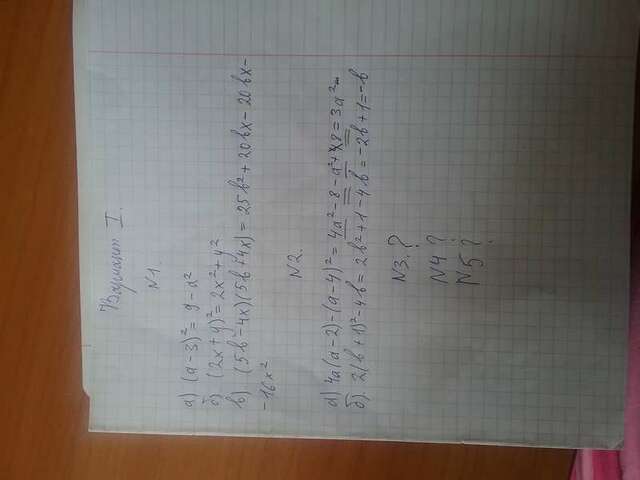 Вариант I.
N1.
а) (a-3)² = 9-a²
б) (2x+y)² = 2x²+y²
в) (5b-4x)(5b+4x) = 25b²+20bx-20bx-
-16x²
N2.
а) 4a(a-2)-(a-4)² = 4a²-8-a²+8 = 3a²
б) 2(b+1)²-4b = 2b²+1-4b = -2b+1=-b
N3.?
N4?
N5?